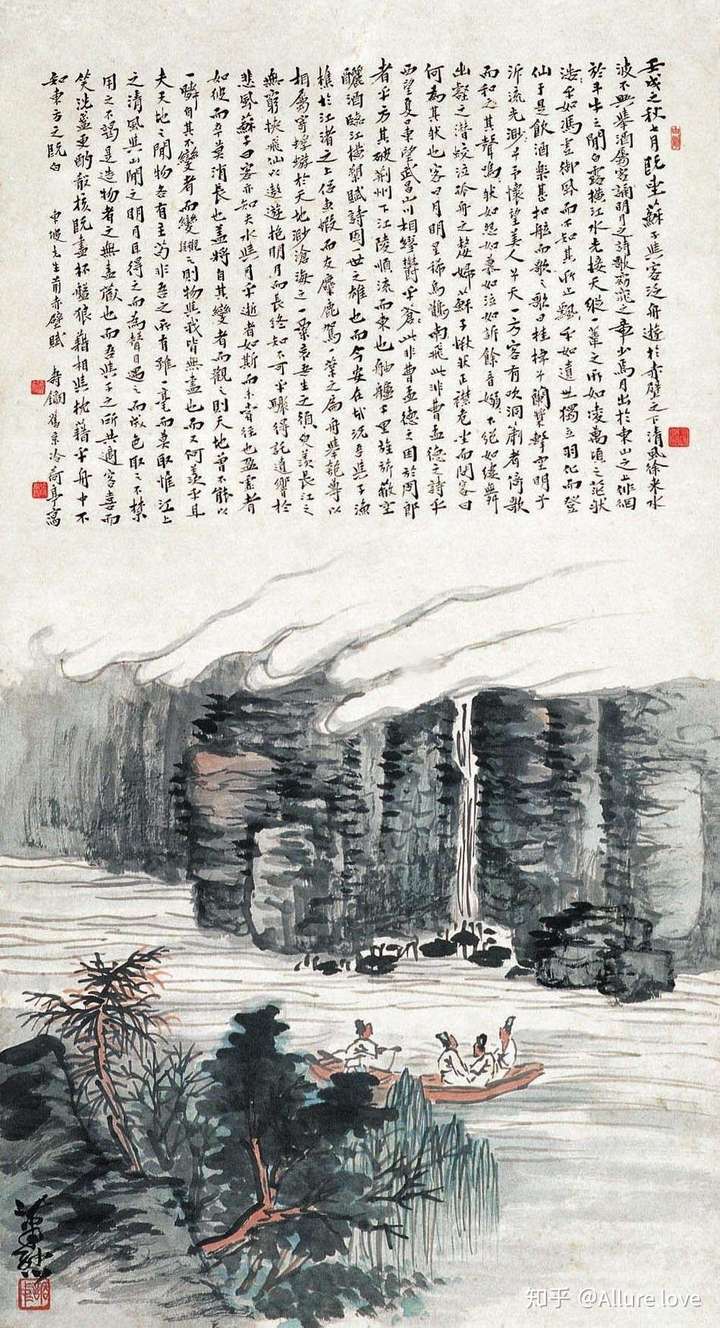 壬戌之秋七月既望蘇子與客泛舟遊於赤壁之下清風徐來水
波不興舉酒屬客誦明月之詩歌窈窕之章少焉月出於東山之上徘徊
於斗牛之間白露橫江水光接天縱一葦之所如凌萬頃之茫然
浩々乎如馮虛御風而不知其所止飄々乎如遺世獨立羽化而登
仙于是飲酒樂甚扣舷而歌之歌曰桂棹兮蘭槳擊空明兮
泝流光渺々兮予懷望美人兮天一方客有吹洞簫者倚歌
而和之其聲嗚々然如怨如慕如泣如訴餘音嫋々不絕如縷舞
幽壑之潛蛟泣孤舟之嫠婦蘇子愀然正襟危坐而問客曰
何為其然也客曰月明星稀烏鵲南飛此非曹孟德之詩乎
西望夏口東望武昌山川相繆鬱乎蒼々此非曹孟德之困於周郎
者乎方其破荊州下江陵順流而東也舳艫千里旌旂蔽空
釃酒臨江橫槊賦詩固一世之雄也而今安在哉況吾與子漁
樵於江渚之上侶魚蝦而友麋鹿駕一葉之扁舟舉匏尊以
相屬寄蜉蝣於天地渺滄海之一粟哀吾生之須臾羨長江之
無窮挾飛仙以遨遊抱明月而長終知不可乎驟得託遺響於
悲風蘇子曰客亦知夫水與月乎逝者如斯而未嘗往也盈虛者
如彼而卒莫消長也蓋將自其變者而觀之則天地曾不能以
一瞬自其不變者而觀之則物與我皆無盡也而又何羨乎且
夫天地之間物各有主苟非吾之所有雖一毫而莫取惟江上
之清風與山間之明月耳得之而為聲目遇之而成色取之不禁
用之不竭是造物者之無盡藏也而吾與子之所共適客喜而
笑洗盞更酌殽核既盡杯盤狼藉相與枕藉乎舟中不
知東方之既白 東坡先生前赤壁賦
蕭愻
知乎 @Allure love